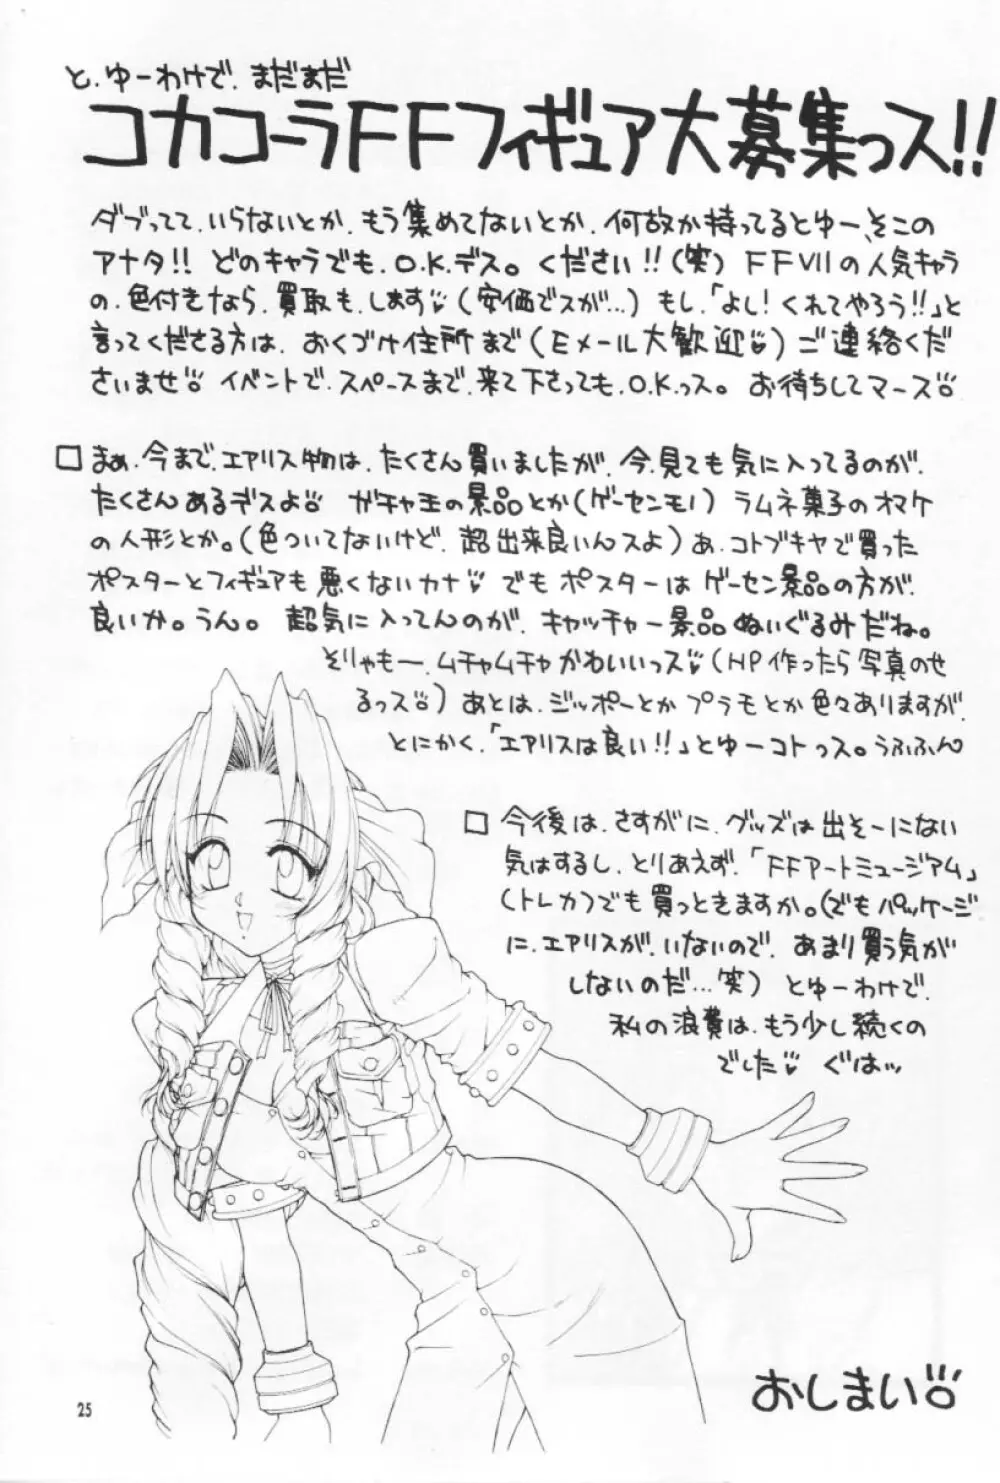 と、ゆーわけで、まだまだ
コカコーラFFフィギュア大募集っス!!
ダブってて、いらないとか、もう集めてないとか、何故か持ってるとゆー、そこの
アナタ!! どのキャラでも、O.K.デス。ください!!(笑) FFVIIの人気キャラ
の、色付きなら、買取も、します(安価でスが…)もし、「よし!くれてやろう!!」と
言ってくださる方は、おくづけ住所まで(Eメール大歓迎)ご連絡くだ
さいませ イベントで、スペースまで、来て下さっても、O.K.っス。お待ちしてマース
□ まぁ、今まで、エアリス物は、たくさん買いましたが、今、見ても気に入ってるのが、
たくさんあるデスよ ガチャ玉の景品とか(ゲーセンモノ)ラムネ菓子のオマケ
の人形とか。(色ついてないけど、超出来良いんスよ)あ、コトブキヤで買った
ポスターとフィギュアも悪くないカナ でもポスターはゲーセン景品の方が、
良いか。うん。超気に入ってんのが、キャッチャー景品ぬいぐるみだね。
そりゃもー、ムチャムチャかわいいっス(HP作ったら写真のせ
るっス)あとは、ジッポーとかプラモとか色々ありますが、
とにかく、「エアリスは良い!!」とゆーコトっス。うふふん
□ 今後は、さすがに、グッズは出そーにない
気はするし、とりあえず、「FFアートミュージアム」
(トレカ)でも買っときますか。(でもパッケージ
に、エアリスが、いないので、あまり買う気が
しないのだ…笑) とゆーわけで、
私の浪費は、もう少し続くの
でした ぐはッ
おしまい
25